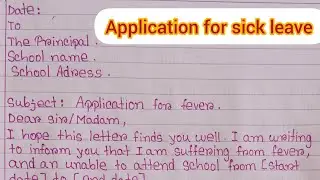 Date:
Application for sick leave
To
The Principal.
School name.
School Adress.
Subject: Application for fever.
Dear Sir/Madam,
I hope this letter finds you well. I am writing
to inform you that I am suffering from fever,
and an unable to attend school from [start
date] to [end date]